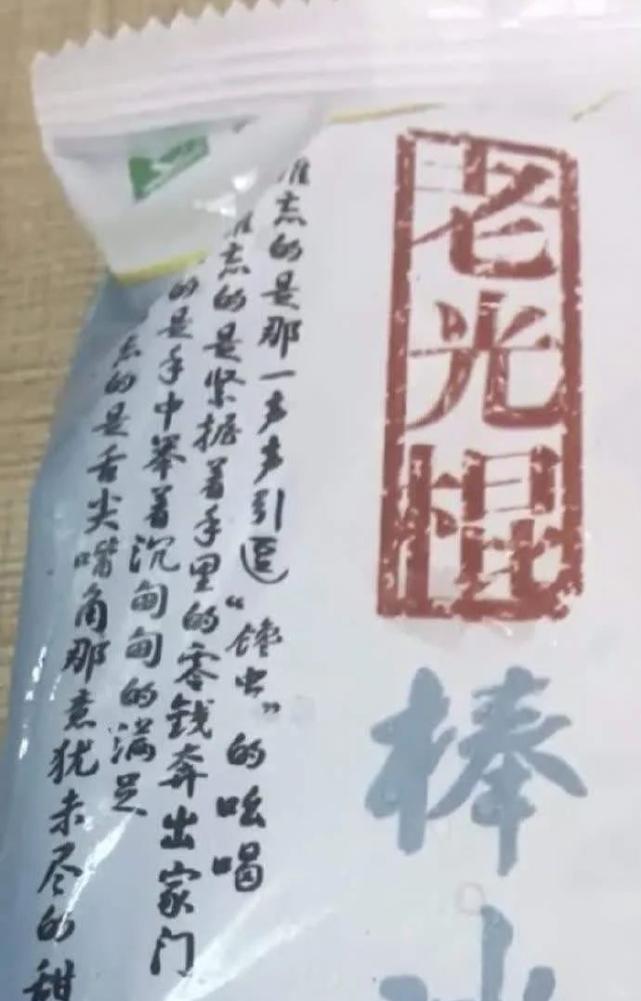 老光棍
棒
忘的是那一声声引逗“馋虫”的吆喝
忘的是紧握着手里的零钱奔出家门
的是手中举着沉甸甸的满足
忘的是舌尖嘴角那意犹未尽的甜